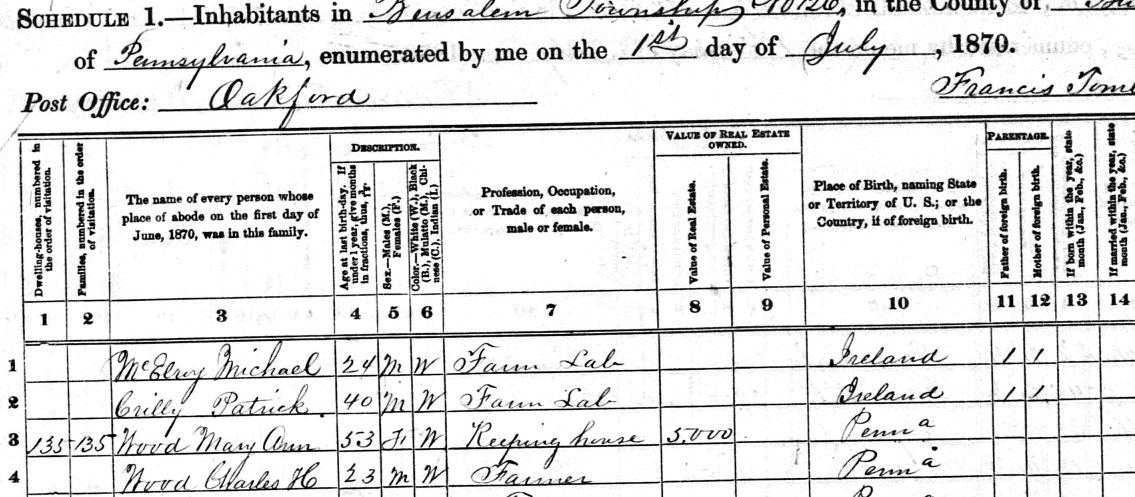 SCHEDULE 1.—Inhabitants in Bensalem Township, in the County of
of Pennsylvania, enumerated by me on the 1st day of July, 1870.
Post Office: Oakford
Francis
Dwelling-houses, numbered in the order of visitation.
Families, numbered in the order of visitation.
The name of every person whose place of abode on the first day of June, 1870, was in this family.
DESCRIPTION.
Age at last birth-day. If under 1 year, give months in fractions, thus,
Sex.—Males (M.), Females (F.)
Color.—White (W.), Black (B.), Mulatto (M.), Chinese (C.), Indian (I.)
Profession, Occupation, or Trade of each person, male or female.
VALUE OF REAL ESTATE OWNED.
Value of Real Estate.
Value of Personal Estate.
Place of Birth, naming State or Territory of U. S.; or the Country, if of foreign birth.
PARENTAGE.
Father of foreign birth.
Mother of foreign birth.
If born within the year, state month (Jan., Feb., &c.)
If married within the year, state month (Jan., Feb., &c.)
1 2 3 4 5 6 7 8 9 10 11 12 13 14
1 McElroy Michael 24 M W Farm Lab Ireland 1 1
2 Crilly Patrick 40 M W Farm Lab Ireland 1 1
3 135 135 Wood Mary Ann 53 F W Keeping house 5,000 Penna
4 Wood Charles H 23 M W Farmer Penna